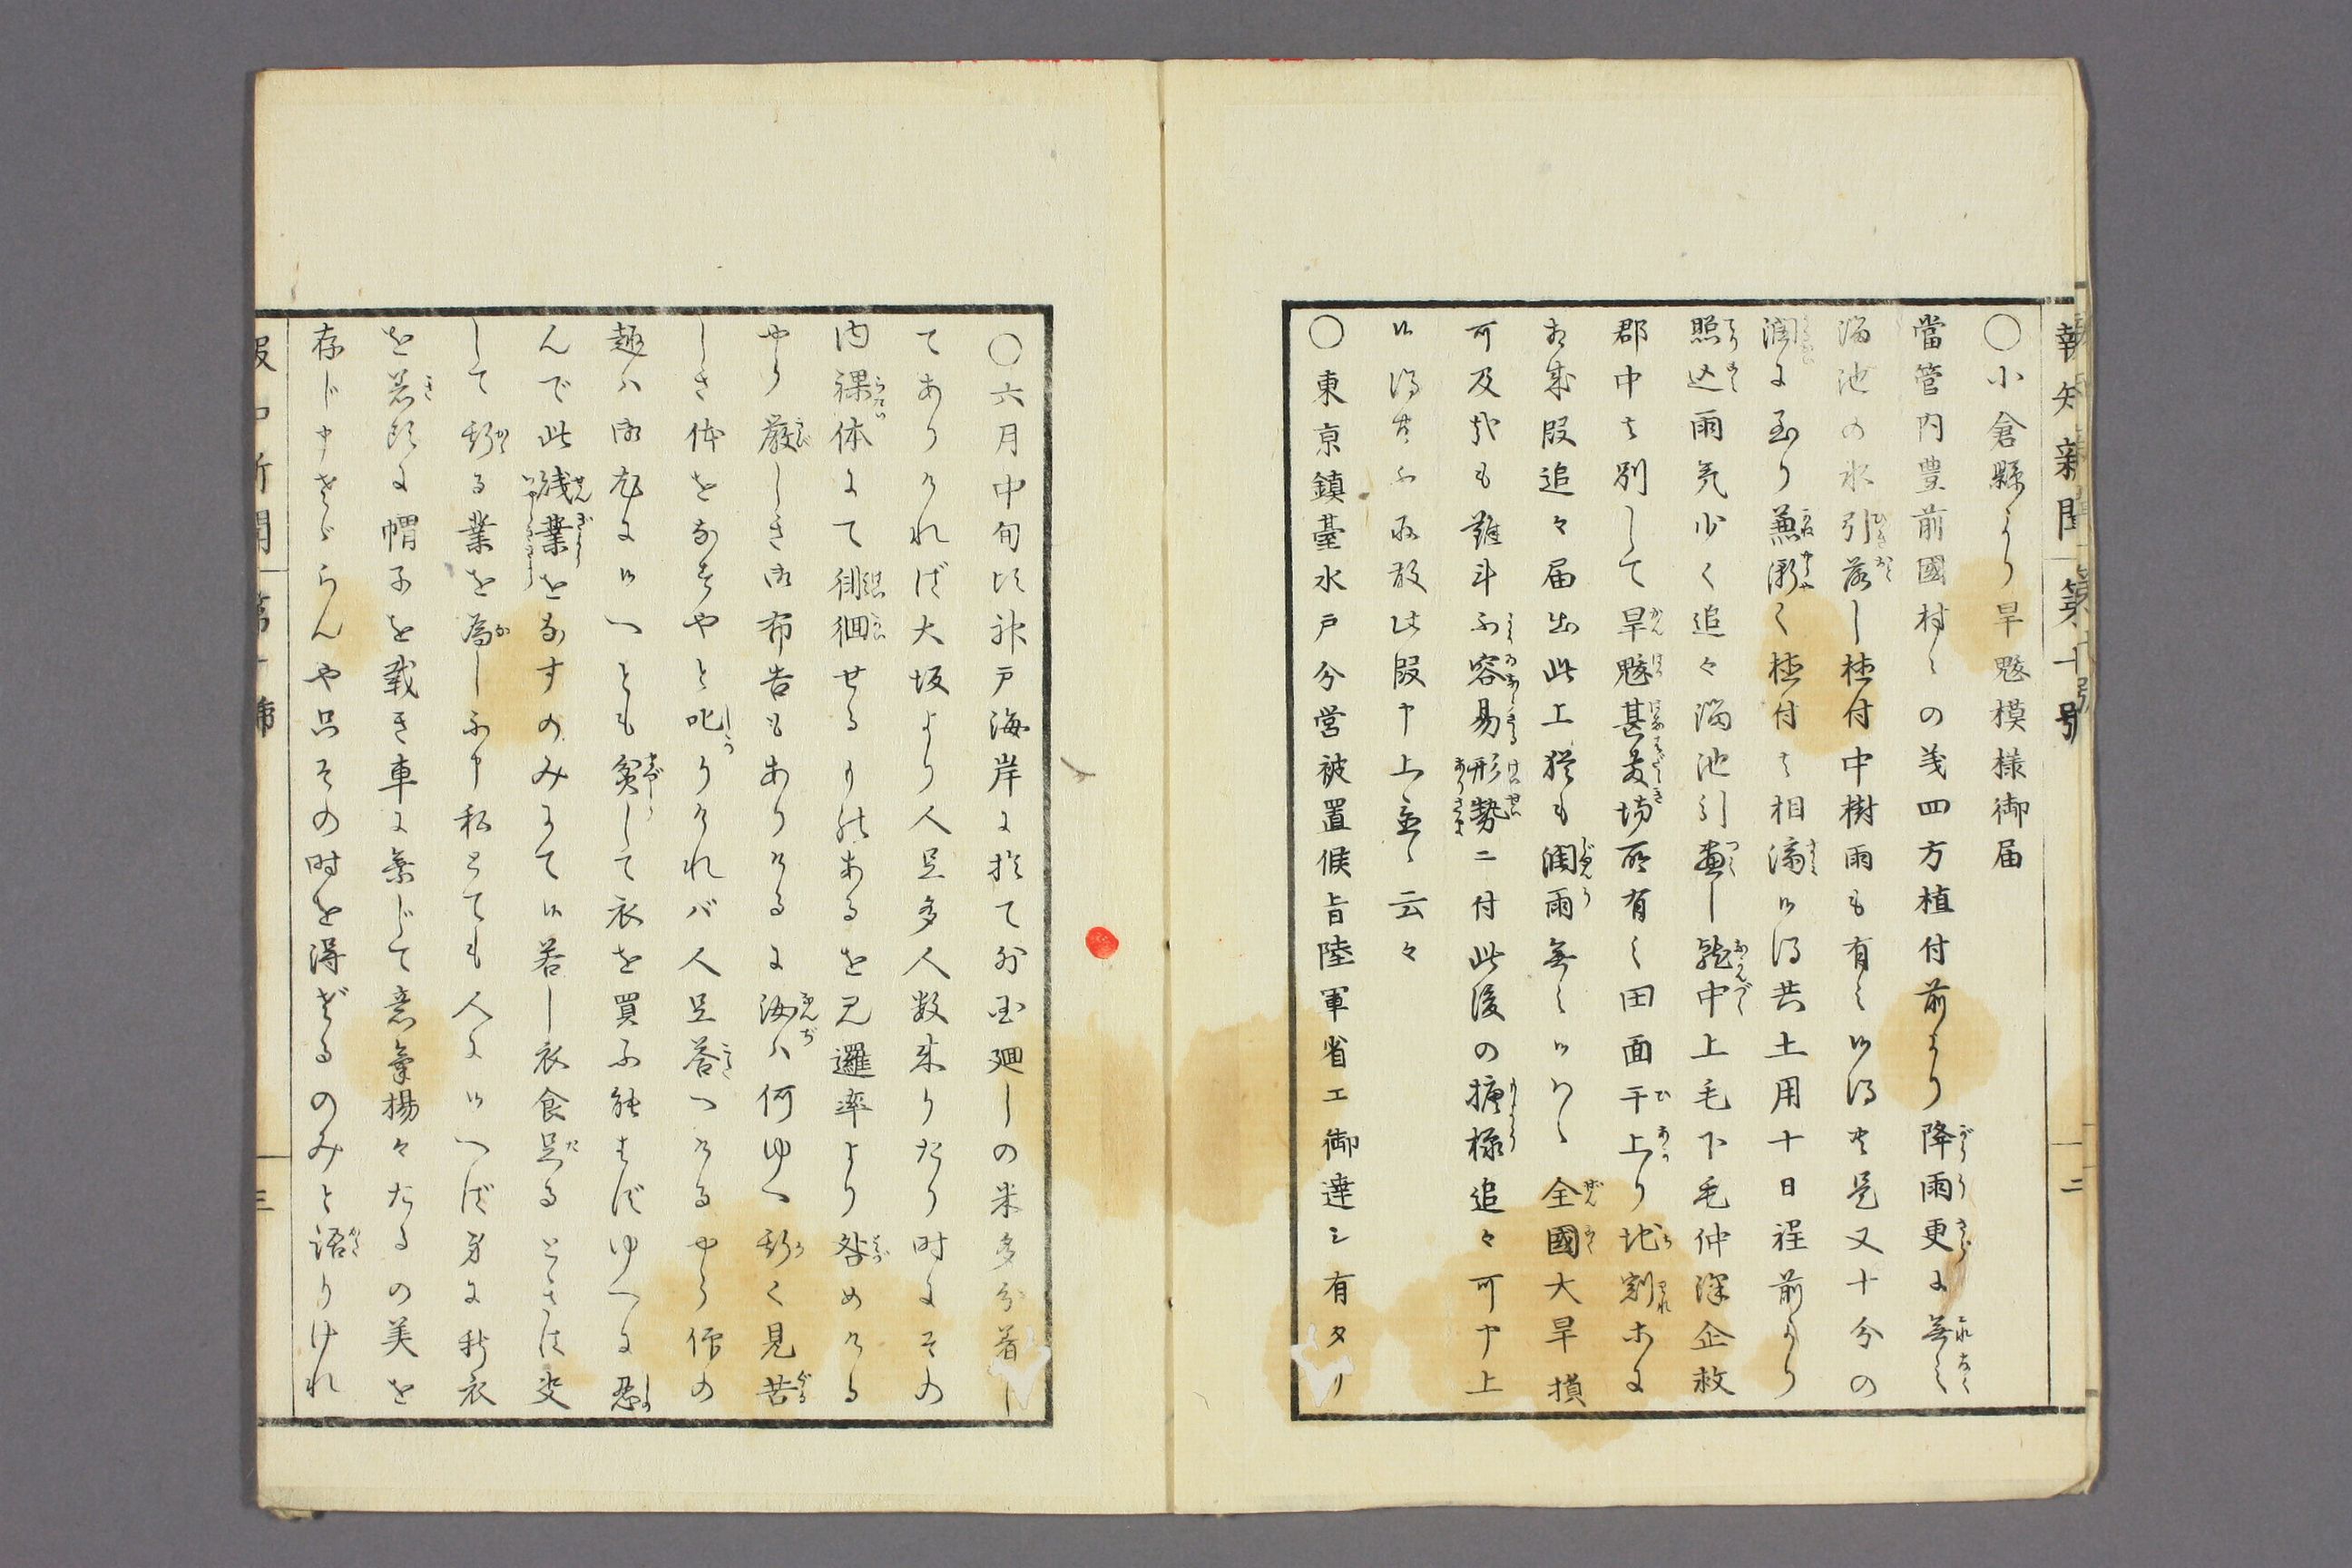 報知新聞 第十号 二
〇小倉縣より旱魃模様御届
當管内豊前國村々の義四方植付前より降雨更に無之
溜池の水引落し植付中樹雨も有之候得共是又十分の
潤に至り兼漸く植付は相濟候得共土用十日程前より
照込雨気少く追々溜池引盡し就中上毛下毛仲津企救
郡中は別して旱魃甚敷場所有之田面干上り地割等に
相成段追々届出此上猶も潤雨無之候はゝ全國大旱損
可及哉も難斗不容易形勢ニ付此後の模様追々可申上
候得共不取敢此段申上置候云々
〇東京鎮䑓水戸分営被置候旨陸軍省エ御達シ有タリ
〇六月中旬頃神戸海岸に於て外国廻しの米多分着し
てありけれバ大坂より人足多人数来りたり時にその
内裸体にて徘徊せるもあるを見邏卒より咎めける
やう嚴しき御布告もありけるに汝ハ何ゆへ斯く見苦
しき体をなすやと叱りけれバ人足答へけるやう仰の
趣ハ御尤に候へとも貧して衣を買ふ能はざゆへに忍
んで此賎業をなすのみにて候若し衣食足るときは決
して斯る業を為し不申私とても人に候へば身に新衣
を着頭に帽子を戴き車に乗じて意氣揚々たるの美を
存じ申さゞらんや只その時を得ざるのみと語りけれ